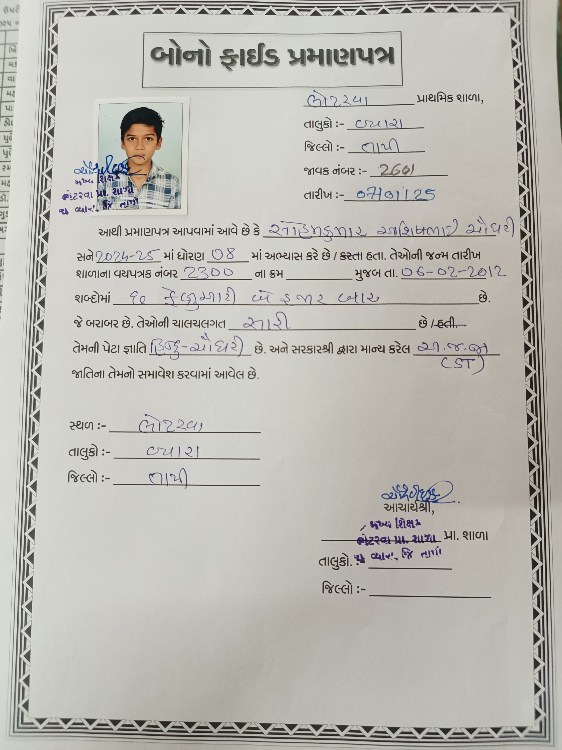 બોનો ફાઈડ પ્રમાણપત્ર
ભોટરવા પ્રાથમિક શાળા,
તાલુકો :- વ્યારા
જિલ્લો :- તાપી
જાવક નંબર :- 2601
તારીખ :- 07/01/25
મુખ્ય શિક્ષક
પ્રા. શાળા
તા. વ્યારા, જિ. તાપી
આથી પ્રમાણપત્ર આપવામાં આવે છે કે ચૌધરી
સને 2024-25 માં ધોરણ 08 માં અભ્યાસ કરે છે / કરતા હતા. તેઓની જન્મ તારીખ
શાળાના વયપત્રક નંબર 2300 ના ક્રમ મુજબ તા. 06-02-2012
શબ્દોમાં ફેબ્રુઆરી બે હજાર બાર છે.
જે બરાબર છે. તેઓની ચાલચલગત સારી છે / હતી.
તેમની પેટા જ્ઞાતિ હિન્દુ-ચૌધરી છે. અને સરકારશ્રી દ્વારા માન્ય કરેલ અ.જ.જા
(ST)
જાતિના તેમનો સમાવેશ કરવામાં આવેલ છે.
સ્થળ :- ભોટરવા
તાલુકો :- વ્યારા
જિલ્લો :- તાપી
આચાર્યશ્રી,
મુખ્ય શિક્ષક
પ્રા. શાળા પ્રા. શાળા
તાલુકો. તા. વ્યારા, જિ. તાપી
જિલ્લો :-